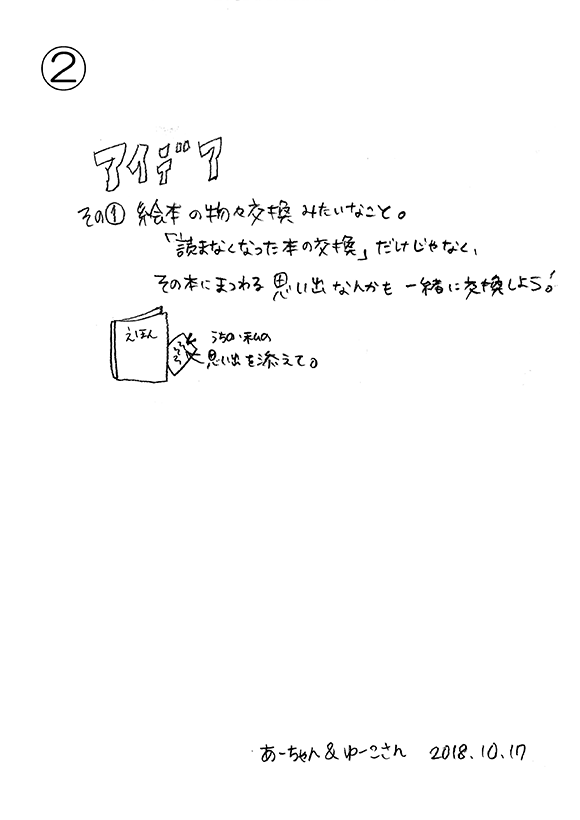 ②
アイデア
その① 絵本の物々交換みたいなこと。
「読まなくなった本の交換」だけじゃなく、
その本にまつわる思い出なんかも一緒に交換しよう!
えほん
うちの、私の
思い出を添えて。
あーちゃん&ゆーこさん 2018.10.17